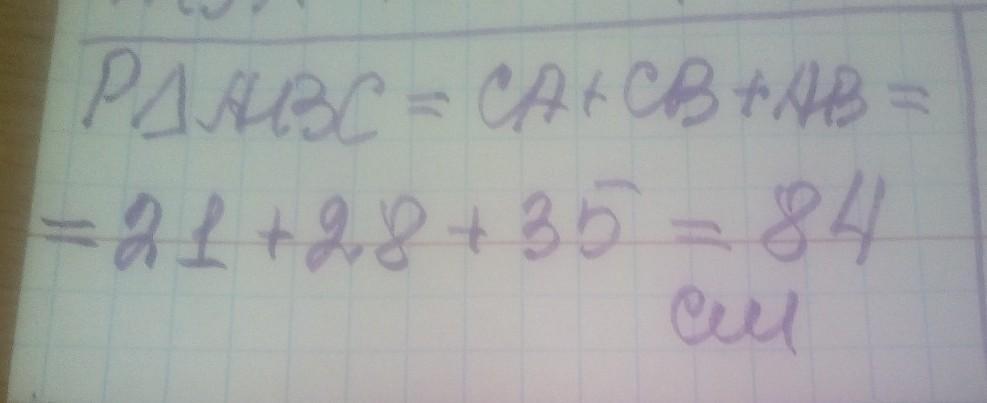 P△ABC = CA + CB + AB =
= 21 + 28 + 35 = 84
см